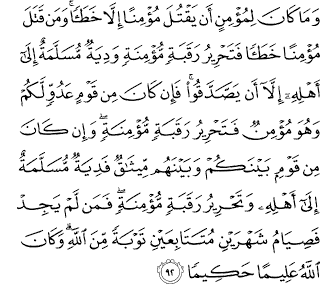 وَمَا كَانَ لِمُؤْمِنٍ أَن يَقْتُلَ مُؤْمِنًا إِلَّا خَطَـًٔا ۚ وَمَن قَتَلَ
مُؤْمِنًا خَطَـًٔا فَتَحْرِيرُ رَقَبَةٍ مُّؤْمِنَةٍ وَدِيَةٌ مُّسَلَّمَةٌ إِلَىٰٓ
أَهْلِهِۦٓ إِلَّآ أَن يَصَّدَّقُوا۟ ۚ فَإِن كَانَ مِن قَوْمٍ عَدُوٍّ لَّكُمْ
وَهُوَ مُؤْمِنٌ فَتَحْرِيرُ رَقَبَةٍ مُّؤْمِنَةٍ ۖ وَإِن كَانَ
مِن قَوْمٍۭ بَيْنَكُمْ وَبَيْنَهُم مِّيثَـٰقٌ فَدِيَةٌ مُّسَلَّمَةٌ
إِلَىٰٓ أَهْلِهِۦ وَتَحْرِيرُ رَقَبَةٍ مُّؤْمِنَةٍ ۖ فَمَن لَّمْ يَجِدْ
فَصِيَامُ شَهْرَيْنِ مُتَتَابِعَيْنِ تَوْبَةً مِّنَ ٱللَّهِ ۗ وَكَانَ
ٱللَّهُ عَلِيمًا حَكِيمًا ﴿٩٢﴾